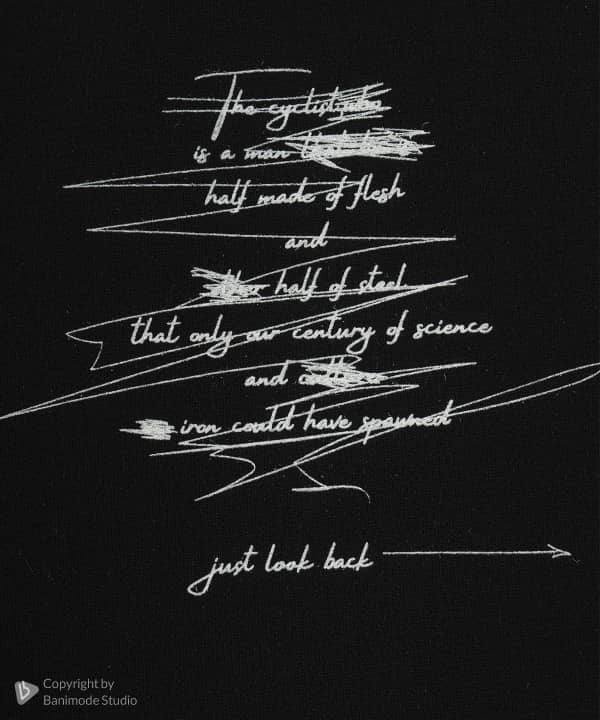 The cyclist who
is a man
half made of flesh
and
half of steel
that only our century of science
and
iron could have spawned
just look back
Copyright by
Banimode Studio